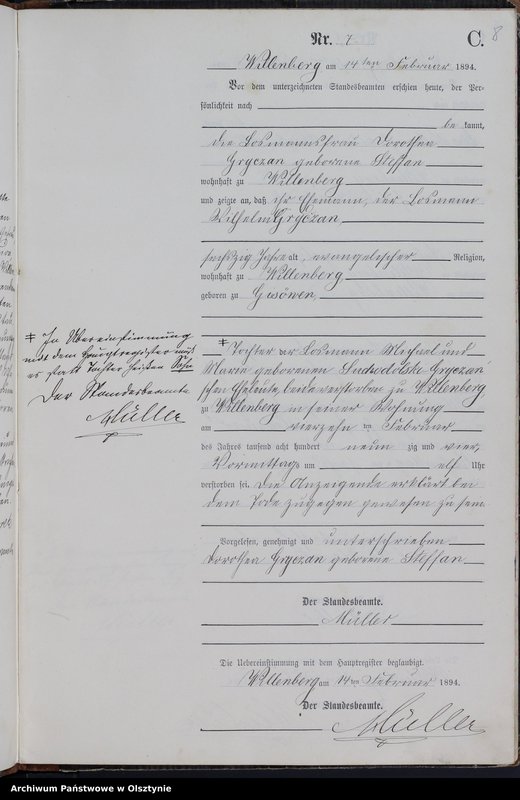 8
Nr. 7 C.
Willenberg am 14ten Februar 1894.
Vor dem unterzeichneten Standesbeamten erschien heute, der Per-
sönlichkeit nach
be kannt,
die Losmannsfrau Dorothea
Gryczan geborene Steffan
wohnhaft zu Willenberg
und zeigte an, daß ihr Ehemann, der Losmann
Wilhelm Gryczan,
sechszig Jahre alt, evangelischer Religion,
wohnhaft zu Willenberg
geboren zu
‡ Tochter der Losmann Michael und
Marie geborenen Gryczan
schen Eheleute, beide verstorben zu Willenberg
zu Willenberg in seiner Wohnung
am vierzehn ten Februar
des Jahres tausend acht hundert neun zig und vier,
Vormittags um elf Uhr
verstorben sei. Die Anzeigende erklärt bei
dem Tode zugegen gewesen zu sein
Vorgelesen, genehmigt und unterschrieben
Dorothea Gryczan geborene Steffan
Der Standesbeamte.
Müller
Die Uebereinstimmung mit dem Hauptregister beglaubigt.
Willenberg am 14ten Februar 1894.
Der Standesbeamte.
Müller
‡ In Übereinstimmung
mit dem Hauptregister muß
es statt Tochter heißen Sohn
Der Standesbeamte
Müller
Archiwum Państwowe w Olsztynie